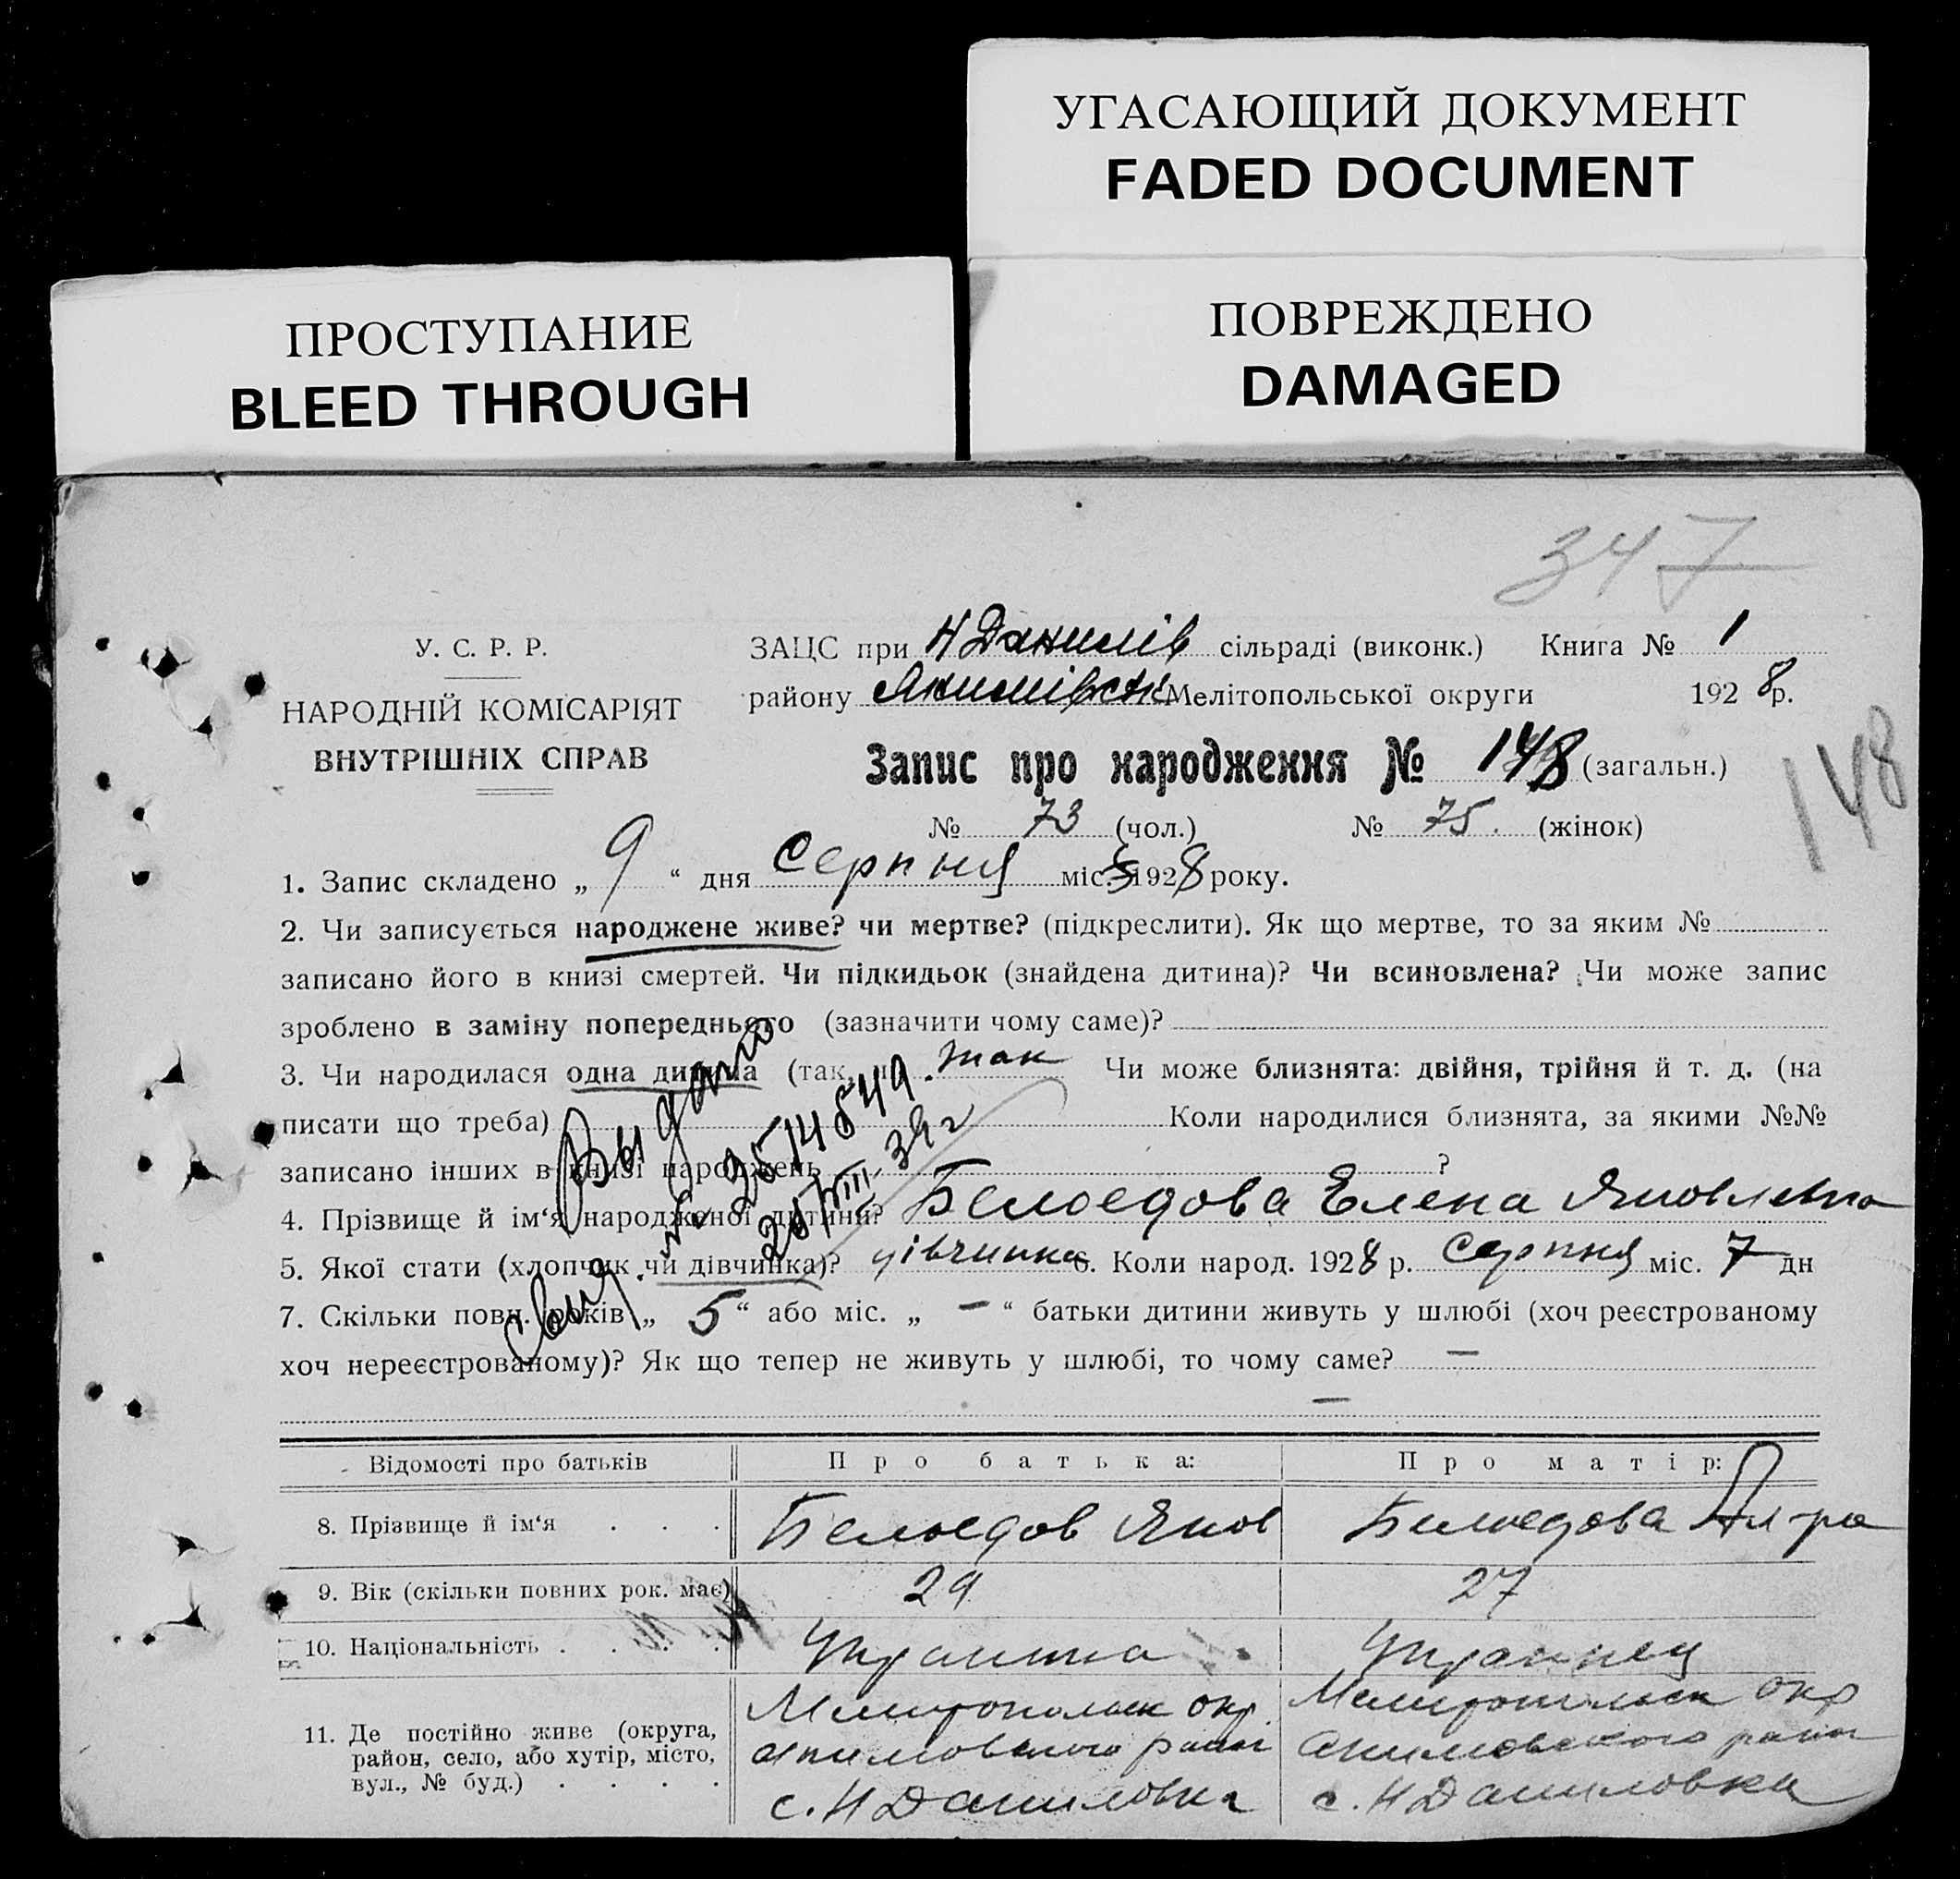 УГАСАЮЩИЙ ДОКУМЕНТ
FADED DOCUMENT
ПРОСТУПАНИЕ
BLEED THROUGH
ПОВРЕЖДЕНО
DAMAGED
347
У. С. Р. Р.
НАРОДНІЙ КОМІСАРІЯТ
ВНУТРІШНІХ СПРАВ
ЗАЦС при Н Данилів сільраді (виконк.) Книга № 1
району Якимівськ Мелітопольської округи 1928 р.
Запис про народження № 148 (загальн.)
148
№ 73 (чол.) № 75. (жінок)
1. Запис складено „ 9 “ дня Серпня міс. 1928 року.
2. Чи записується народжене живе? чи мертве? (підкреслити). Як що мертве, то за яким №
записано його в книзі смертей. Чи підкидьок (знайдена дитина)? Чи всиновлена? Чи може запис
зроблено в заміну попереднього (зазначити чому саме)?
3. Чи народилася одна дитина (так, так Чи може близнята: двійня, трійня й т. д. (на
писати що треба) Коли народилися близнята, за якими №№
записано інших в книзі народжень ?
Выдано
свид.
4. Прізвище й ім‘я народженої дитини? Белоедова Елена Яковлевна
5. Якої стати (хлопчик чи дівчинка)? дівчинка 6. Коли народ. 1928 р. Серпня міс. 7 дн
7. Скільки повн. років „ 5 “ або міс. „ — “ батьки дитини живуть у шлюбі (хоч реєстрованому
хоч нереєстрованому)? Як що тепер не живуть у шлюбі, то чому саме? —
—
Відомості про батьків Про батька: Про матір:
8. Прізвище й ім‘я . . . Белоедов Яков Билоедова Ал-ра
9. Вік (скільки повних рок. має) 29 27
10. Національність . . . . Украинец
11. Де постійно живе (округа,
район, село, або хутір, місто,
вул., № буд.) . . . .
Мелитопольск окр.
Акимовского район
с. Н Даниловка
Мелитопольск окр
Акимовского район
с. Н Даниловка